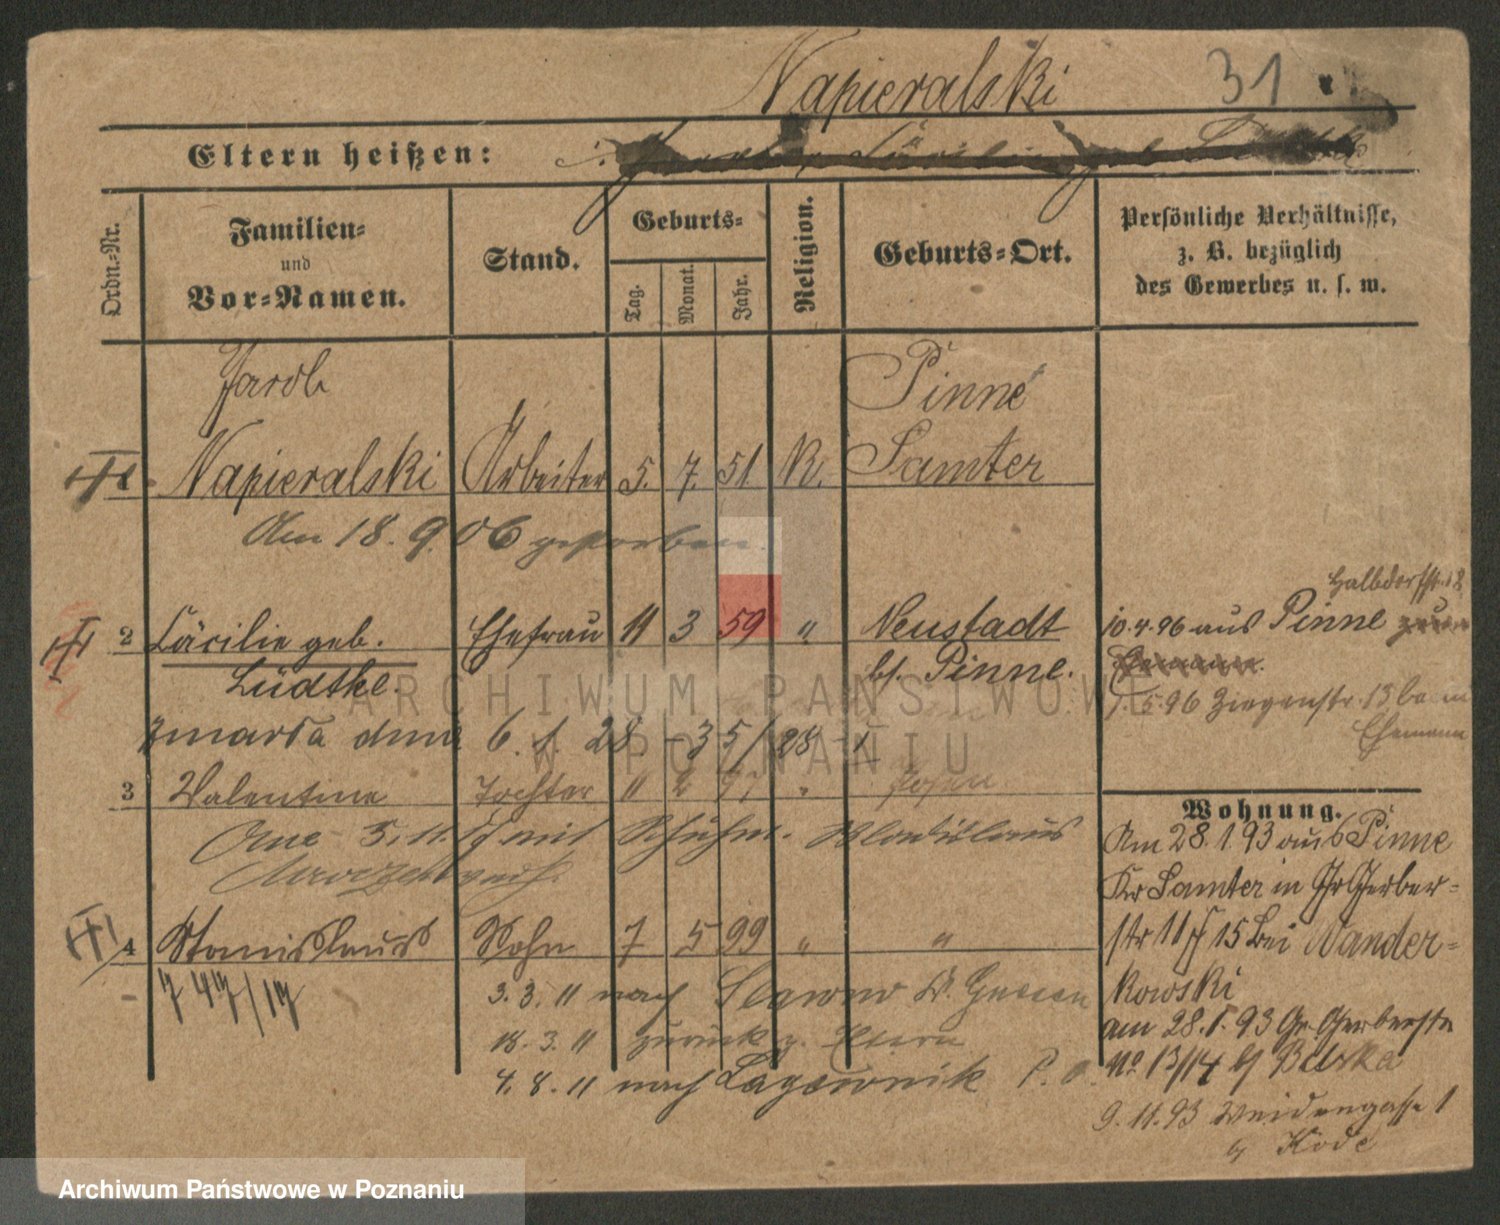 Napieralski 31
Eltern heißen:
Ordn.-Nr.
Familien-
und
Vor-Namen.
Stand.
Geburts-
Tag.
Monat.
Jahr.
Religion.
Geburts-Ort.
Persönliche Verhältnisse,
z. B. bezüglich
des Gewerbes u. s. w.
Jacob Pinne
1 Napieralski Arbeiter 5. 7. 51 K. Samter
Am 18. 9. 06 gestorben.
2 Cäcilie geb. Ehefrau 11 3 59 " Neustadt
Lüdtke. bf. Pinne.
zmarła dnia 6. 1. 28.
3 Valentine Tochter " 2 97 " Posen
5. 11. 19 mit Schuhm. Wladislaus
4 Stanislaus Sohn 7 5 99 " "
3. 3. 11 nach
18. 3. 11 zurück z. Eltern
4. 8. 11 nach Lagiewnik P. O.
Halbdorfstr. 18
10.4.96 aus Pinne
1. 5. 96 Ziegenstr. 13 beim
Ehemann
Wohnung.
Am 28.1.93 aus Pinne
Kr Samter in Gr Gerber-
str 11 15 bei Wander-
kowski
am 28. 93 Gr. Gerberstr
No 13/14 Belska
9. 11. 93 Weidengasse 1
Kode
ARCHIWUM PAŃSTWOWE
W POZNANIU
Archiwum Państwowe w Poznaniu